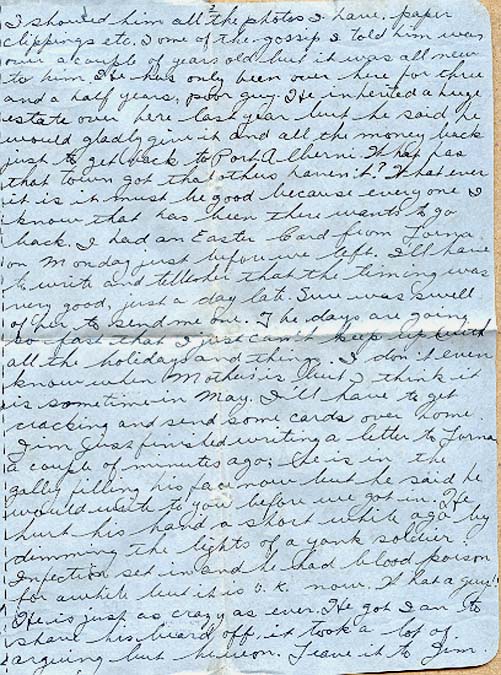 2
I showed him all the photos I have, paper
clippings etc. Some of the gossip I told him was
over a couple of years old but it was all new
to him. He has only been over here for three
and a half years, poor guy. He inherited a huge
estate over here last year but he said he
would gladly give it and all the money back
just to get back to Port Alberni. What has
that town got that others haven't? What ever
it is it must be good because everyone I
know that has been there wants to go
back. I had an Easter Card from Lorna
on Monday just before we left. I'll have
to write and tell her that the timing was
very good, just a day late. Sure was swell
of her to send me one. The days are going
so fast that I just can't keep up with
all the holidays and things. I don't even
know when Mother's is but I think it
is sometime in May. I'll have to get
cracking and send some cards over some
Jim just finished writing a letter to Lorna
a couple of minutes ago; he is in the
gally filling his face now but he said he
would write to you before we got in. He
hurt his hand a short while ago by
dimming the lights of a yank soldier.
Infection set in and he had blood poison
for awhile but it is O.K. now. What a guy!
He is just as crazy as ever. He got Ian to
shave his beard off, it took a lot of
arguing but he won. Leave it to Jim.